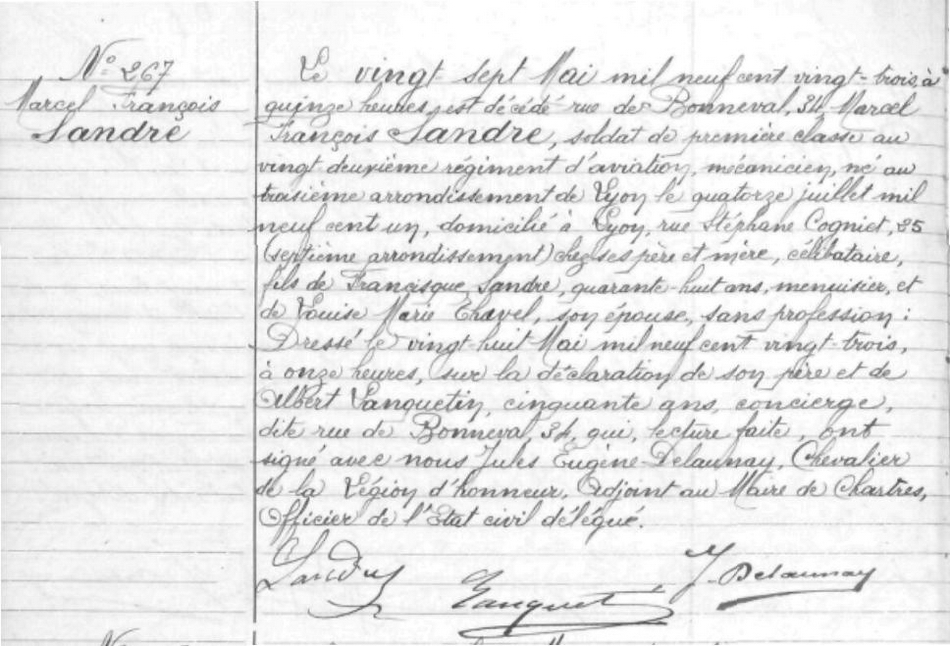 N° 267
Marcel François
Sandre
Le vingt sept Mai mil neuf cent vingt-trois, à
quinze heures, est décédé rue de Bonneval, 34, Marcel
François Sandre, soldat de première classe au
vingt deuxième régiment d'aviation, mécanicien, né au
troisième arrondissement de Lyon le quatorze juillet mil
neuf cent un, domicilié à Lyon, rue Stéphane Cogniet, 25
(septième arrondissement) chez ses père et mère, célibataire,
fils de Francisque Sandre, quarante-huit ans, menuisier, et
de Louise Marie Chavel, son épouse, sans profession :
Dressé le vingt-huit Mai mil neuf cent vingt-trois,
à onze heures, sur la déclaration de son père et de
Albert Lanquetin, cinquante ans, concierge,
dite rue de Bonneval, 34, qui, lecture faite, ont
signé avec nous Jules Eugène Delaunay, Chevalier
de la Légion d'honneur, Adjoint au Maire de Chartres,
Officier de l'État civil délégué.
J. Delaunay